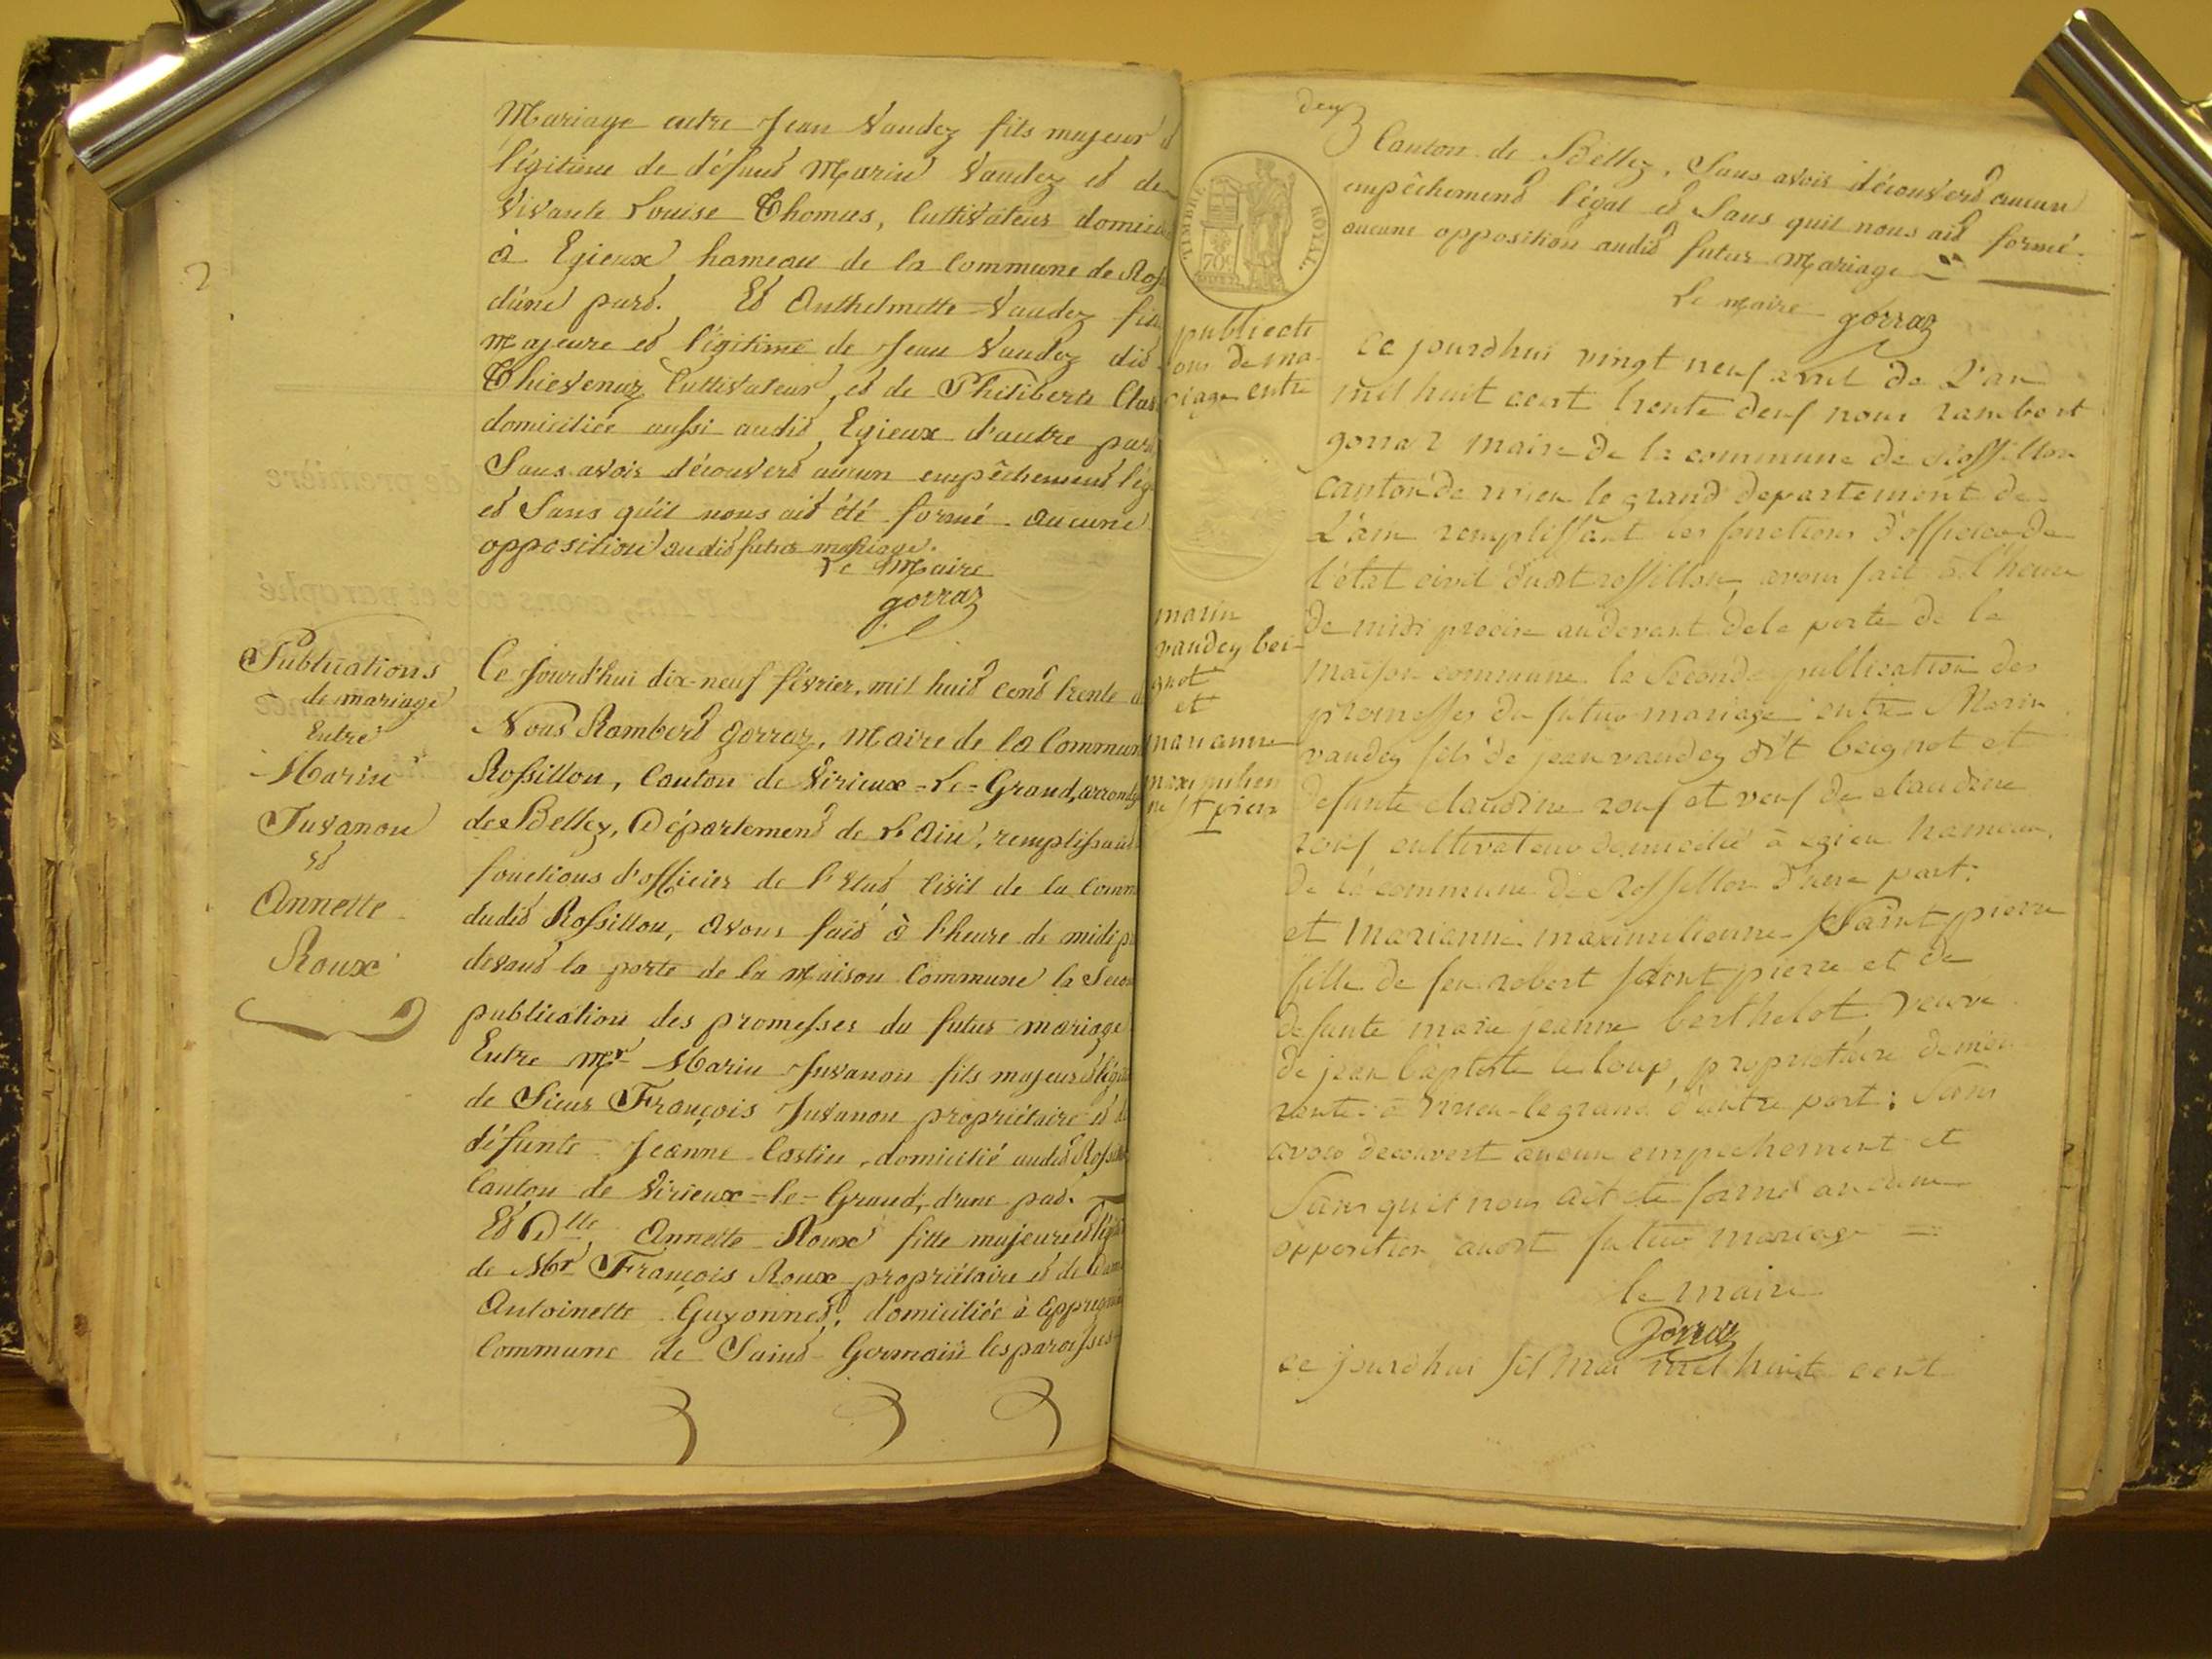 Mariage entre Jean Vaudez fils majeur
légitime de défunt Marin Vaudez et de
Vivante Louise Thomas, Cultivateur domici
à Egieux hameau de la Commune de Ross
d'une part. Et Anthelmette Vaudez fille
majeure et légitime de Jean Vaudez dit
Thievenaz Cultivateur, et de Philiberte Clas
domiciliée aussi audit Egieux d'autre part
Sans avoir découvert aucun empêchement lég
et Sans qu'il nous ait été formé aucune
opposition audit futur mariage.
Le Maire
gorraz
Publications
de mariage
Entre
Marin
Juvanon
et
Annette
Roux
Ce Jourd'hui dix-neuf février, mil huit cent trente
Nous Rambert Gorraz, Maire de la Commune
Rossillon, Canton de Virieux-Le-Grand, arrondis
de Belley, Département de L'Ain, remplissant
fonctions d'officier de l'Etat Civil de la Comm
dudit Rossillon, Avons fait à l'heure de midi p
devant la porte de la Maison Commune la Secon
publication des promesses du futur mariage
Entre Mr Marin Juvanon fils majeur et légit
de Sieur François Juvanon propriétaire et de
défunte Jeanne Castin, domicilié audit Rossill
Canton de Virieux-le-Grand, d'une part.
Et Dlle Annette Roux fille majeure et légit
de Mr François Roux propriétaire et de Dame
Antoinette Guyonnet, domiciliée à Appregnin
Commune de Saint Germain les paroisses
deux
Canton de Belley, Sans avoir découvert aucun
empêchement légal et Sans quil nous ait formé
aucune opposition audit futur Mariage
Le maire gorraz
TIMBRE ROYAL
70c
publicati
ons de ma-
riage entre
marin
vaudey bei-
gnot
et
marianne
maximilien
ne St pierre
ce jourdhui vingt neuf avril de L'an
mil huit cent trente deuf nous rambert
gorraz maire de la commune de Rossillon
canton de virieu le grand departement de
L'ain remplissant les fonctions d'officier de
l'état civil dudt rossillon, avons fait à l'heure
de midi précise audevant de la porte de la
maison commune la Seconde publication des
promesses du futur mariage entre Marin
vaudey fils de jean vaudey dit beignot et
defunte claudine rouf et veuf de claudine
rouf cultivateur domicilié à egieu hameau
de la commune de Rossillon d'une part;
et marianne maximilienne Saint pierre
fille de feu robert Saint pierre et de
defunte marie jeanne berthelot, veuve
de jean baptiste leloup, propriétaire demeu
rante à virieu-legrand d'autre part; Sans
avoir decouvert aucun empechement et
Sans quil nous ait été formé aucune
opposition audt futur mariage
le maire
Gorraz
ce jourdhui fil mai mil huite cent